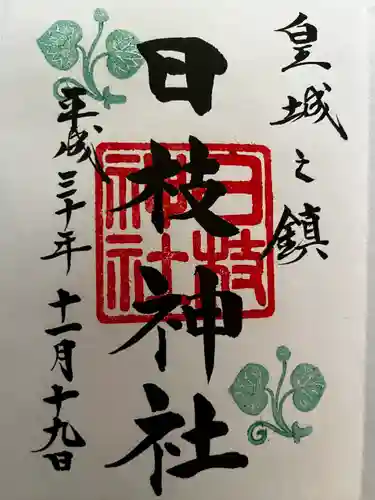 皇城之鎮
日枝神社
日枝神社
平成三十年 十一月十九日